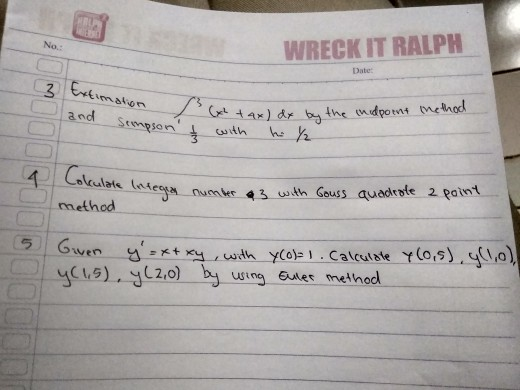 WRECK IT RALPH
No.:
Date:
3 Extimation ∫³ (x² + 4x) dx by the midpoint method
and simpson' 1/3 with h= 1/2
4 Calculate Integral number 3 with Gauss quadrate 2 point
method
5 Given y' = x + xy, with y(0)=1. Calculate y(0,5), y(1,0),
y(1,5), y(2,0) by using Euler method